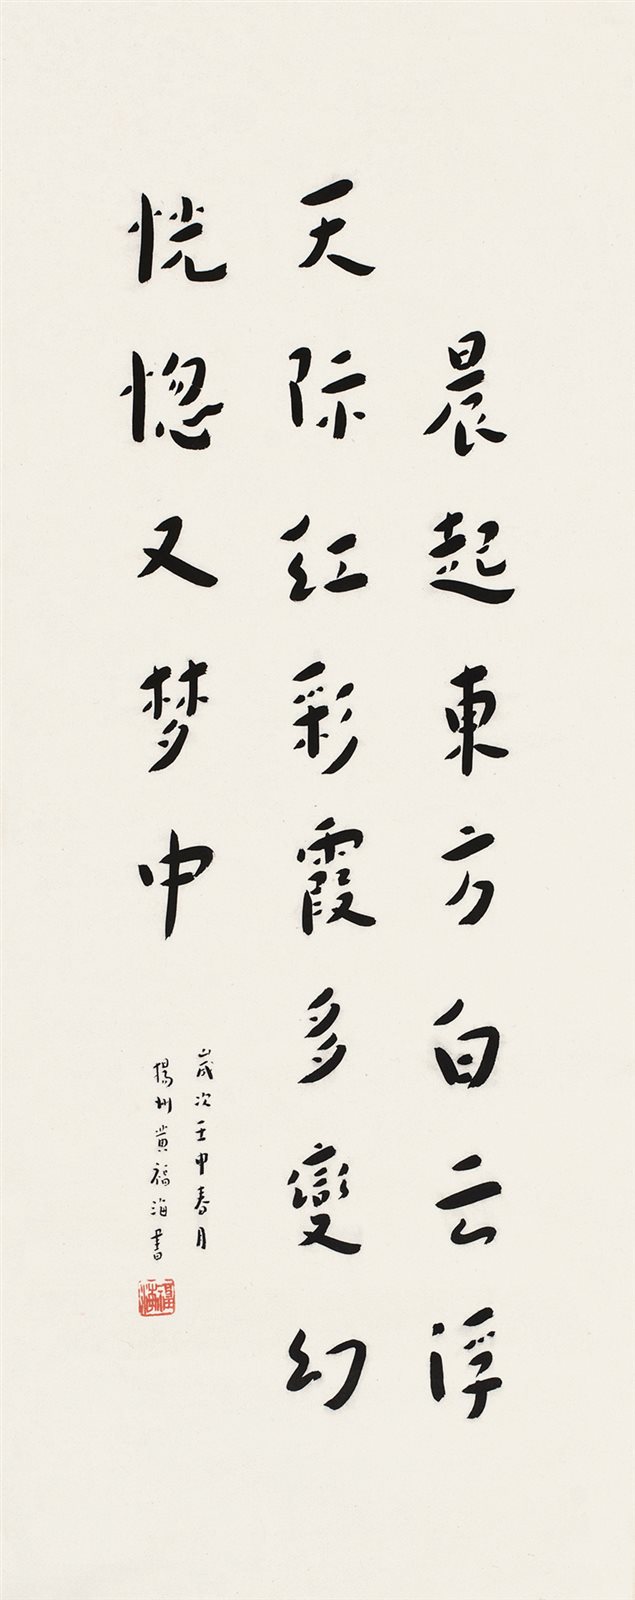 晨起東方白云浮
天际红彩霞多變幻
恍惚又梦中
歲次壬申春月
揚州黄福海書
福海